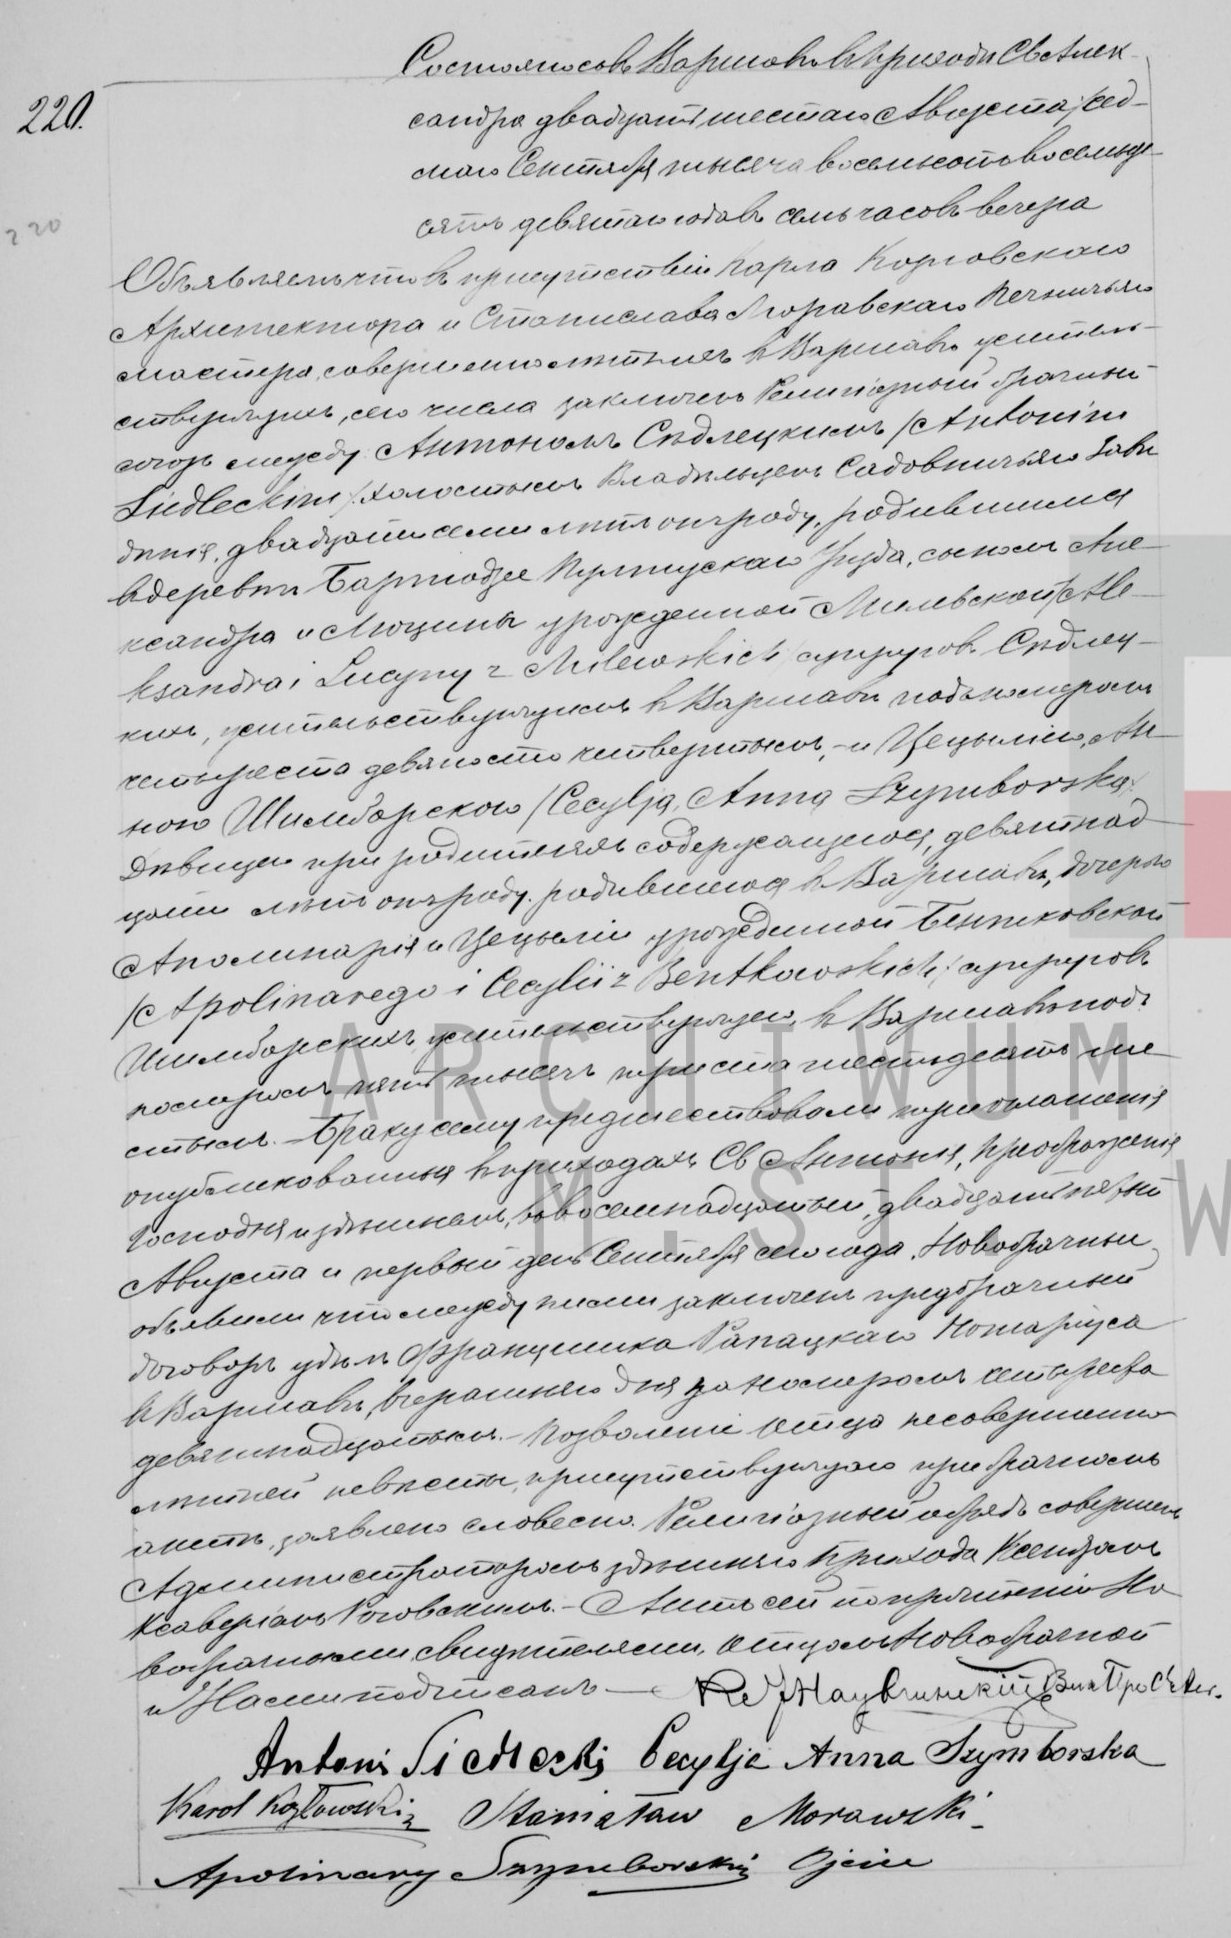 220.
220
Состоялось въ Варшавѣ въ приходѣ Св Алек-
сандра двадцать шестаго Августа /сед-
маго Сентября тысяча восемьсотъ восемьде-
сятъ девятаго года въ семь часовъ вечера
Объявляемъ что въ присутствіи Карла Козловскаго
Архитектора и Станислава Моравскаго Печничьяго
мастера, совершеннолѣтнихъ въ Варшавѣ житель-
ствующихъ, сего числа заключенъ Религіозный брачный
союзъ между Антономъ Сѣдлецкимъ /Antonim
Siedleckim/ холостымъ Владѣльцемъ Садовничьяго Заве
денія, двадцати семи лѣтъ отъ роду, родившимся
въ деревнѣ Бартодзее Пултускаго Уѣзда, сыномъ Але-
ксандра и Люцины урожденной Милевской /Ale-
ksandra i Lucyny z Milewskich/ супруговъ Сѣдлец-
кихъ, жительствующимъ въ Варшавѣ подъ номеромъ
четыреста девяносто четвертымъ, - и Цецыліею, Ан-
ною Шимборскою /Cecylją, Anną Szymborską/
Дѣвицею при родителяхъ содержащеюся, девятнад-
цати лѣтъ отъ роду, родившеюся въ Варшавѣ, дочерью
Аполинарія и Цецыліи урожденной Бентковской
/Apolinarego i Cecylii z Bentkowskich/ супруговъ
Шимборскихъ, жительствующею въ Варшавѣ подъ
номеромъ пять тысячъ триста шестьдесятъ ше-
стымъ. - Браку сему предшествовали три оглашенія
опубликованныя въ приходахъ Св Антонія, Преображенія
Господня и здѣшнемъ, въ восемнадцатый, двадцать пятый
Августа и первый день Сентября сего года. Новобрачные
объявили что между ними заключенъ предбрачный
договоръ у дѣлъ Францишка Рапацкаго Нотаріуса
въ Варшавѣ, вчерашняго дня за номеромъ четыреста
девятнадцатымъ. - Позволеніе Отца несовершенно-
лѣтней невѣсты, присутствующаго при брачномъ
актѣ, заявлено словесно. Религіозный обрядъ совершенъ
Администраторомъ здѣшняго Прихода Ксендзомъ
Ксаверіемъ Роговскимъ. - Актъ сей по прочтеніи Но
вобрачными свидѣтелями, Отцомъ Новобрачной
и Нами подписанъ -
Antoni Siedlecki Cecylja Anna Szymborska
Karol Kozłowski Stanisław Morawski
Apolinary Szymborski Ojciec
ARCHIWUM
M.ST. W